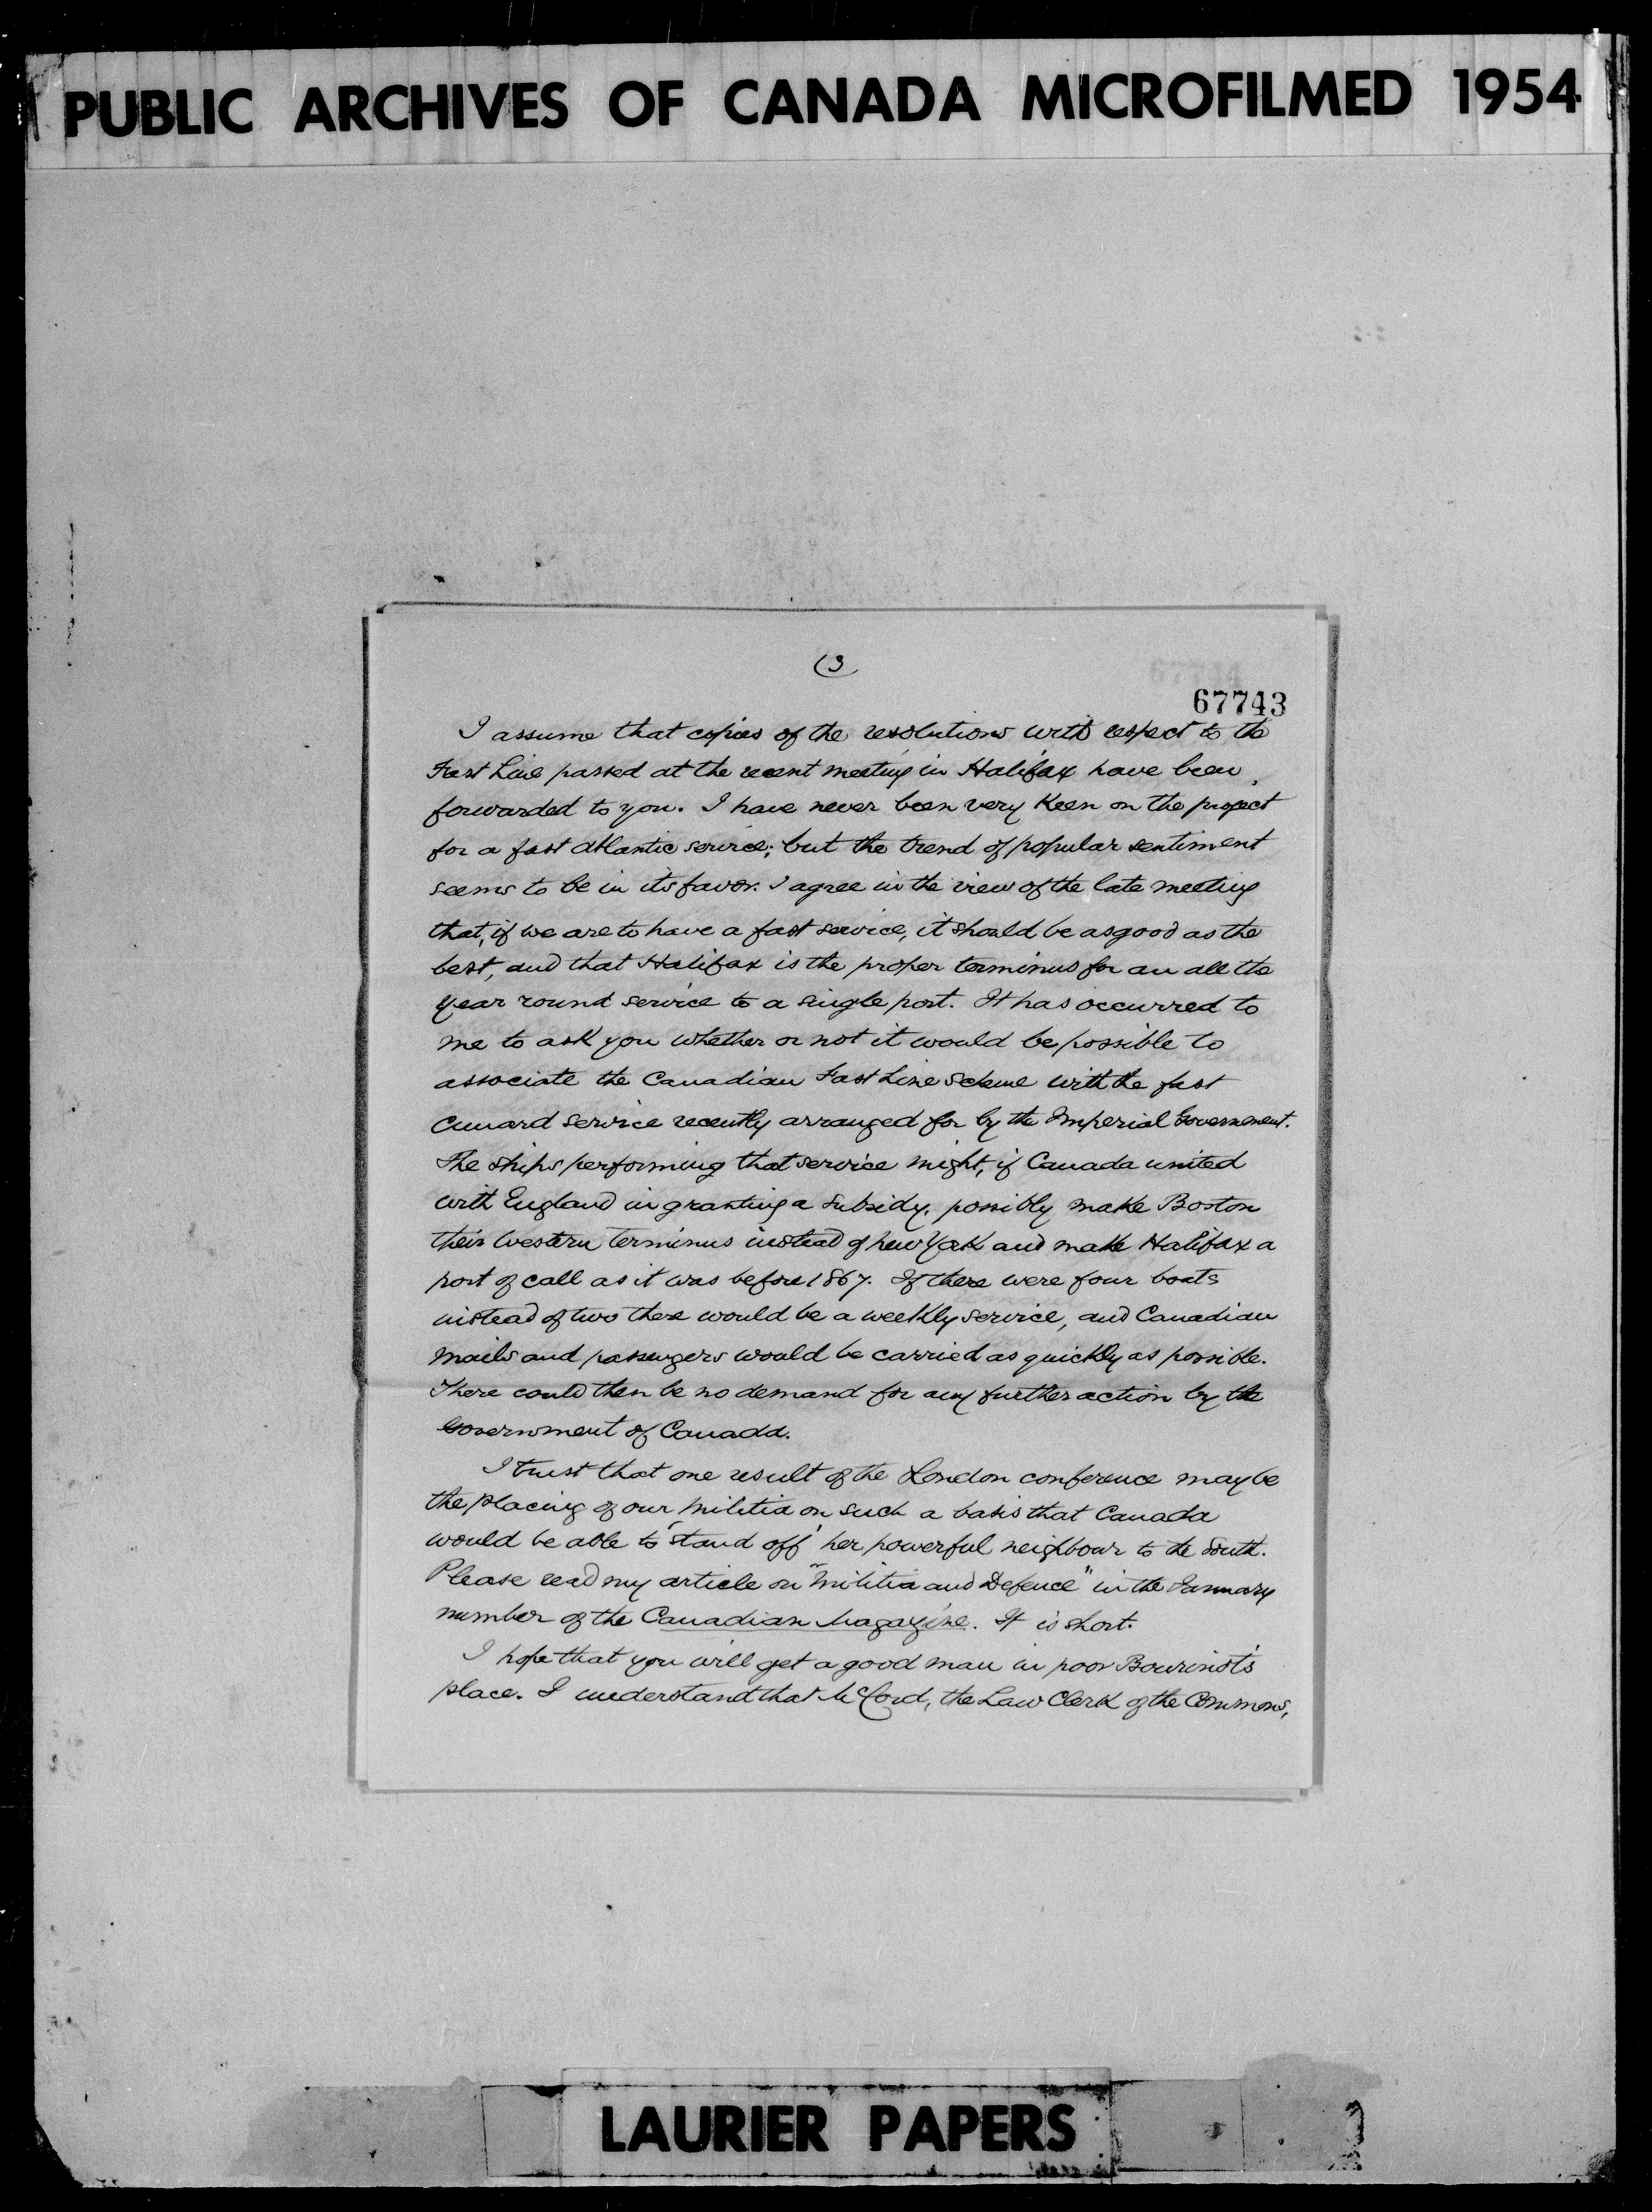 PUBLIC ARCHIVES OF CANADA MICROFILMED 1954
(3
67743
I assume that copies of the resolutions with respect to the
Fast Line passed at the recent meeting in Halifax have been
forwarded to you. I have never been very keen on the project
for a fast Atlantic service; but the trend of popular sentiment
seems to be in its favor. I agree in the view of the late meeting
that, if we are to have a fast service, it should be as good as the
best, and that Halifax is the proper terminus for an all the
year round service to a single port. It has occurred to
me to ask you whether or not it would be possible to
associate the Canadian Fast Line scheme with the fast
Cunard service recently arranged for by the Imperial Government.
The ships performing that service might, if Canada united
with England in granting a subsidy, possibly make Boston
their western terminus instead of New York and make Halifax a
port of call as it was before 1867. If there were four boats
instead of two there would be a weekly service, and Canadian
mails and passengers would be carried as quickly as possible.
There could then be no demand for any further action by the
Government of Canada.
I trust that one result of the London conference may be
the placing of our militia on such a basis that Canada
would be able to 'stand off' her powerful neighbour to the South.
Please read my article on "Militia and Defence" in the January
number of the Canadian Magazine. It is short.
I hope that you will get a good man in poor Bourinot's
place. I understand that McCord, the Law Clerk of the Commons,
LAURIER PAPERS